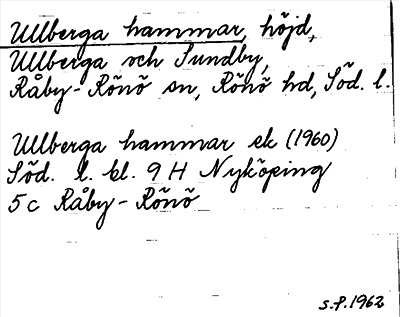 Ullberga hammar, höjd,
Ullberga och Sundby,
Råby-Rönö sn, Rönö hd, Söd. l.
Ullberga hammar ek (1960)
Söd. l. bl. 9 H Nyköping
5 c Råby-Rönö
S.P. 1962